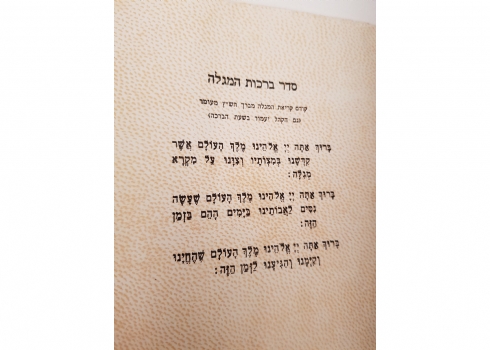 סדר ברכות המגלה
קודם קריאת המגלה מברך הש״ץ מעומד
(וגם הקהל יעמוד בשעת הברכה)
בָּרוּךְ אַתָּה יְיָ אֱלֹהֵינוּ מֶלֶךְ הָעוֹלָם אֲשֶׁר
קִדְּשָׁנוּ בְּמִצְוֹתָיו וְצִוָּנוּ עַל מִקְרָא
מְגִלָּה:
בָּרוּךְ אַתָּה יְיָ אֱלֹהֵינוּ מֶלֶךְ הָעוֹלָם שֶׁעָשָׂה
נִסִּים לַאֲבוֹתֵינוּ בַּיָּמִים הָהֵם בַּזְּמַן
הַזֶּה:
בָּרוּךְ אַתָּה יְיָ אֱלֹהֵינוּ מֶלֶךְ הָעוֹלָם שֶׁהֶחֱיָנוּ
וְקִיְּמָנוּ וְהִגִּיעָנוּ לַזְּמַן הַזֶּה: